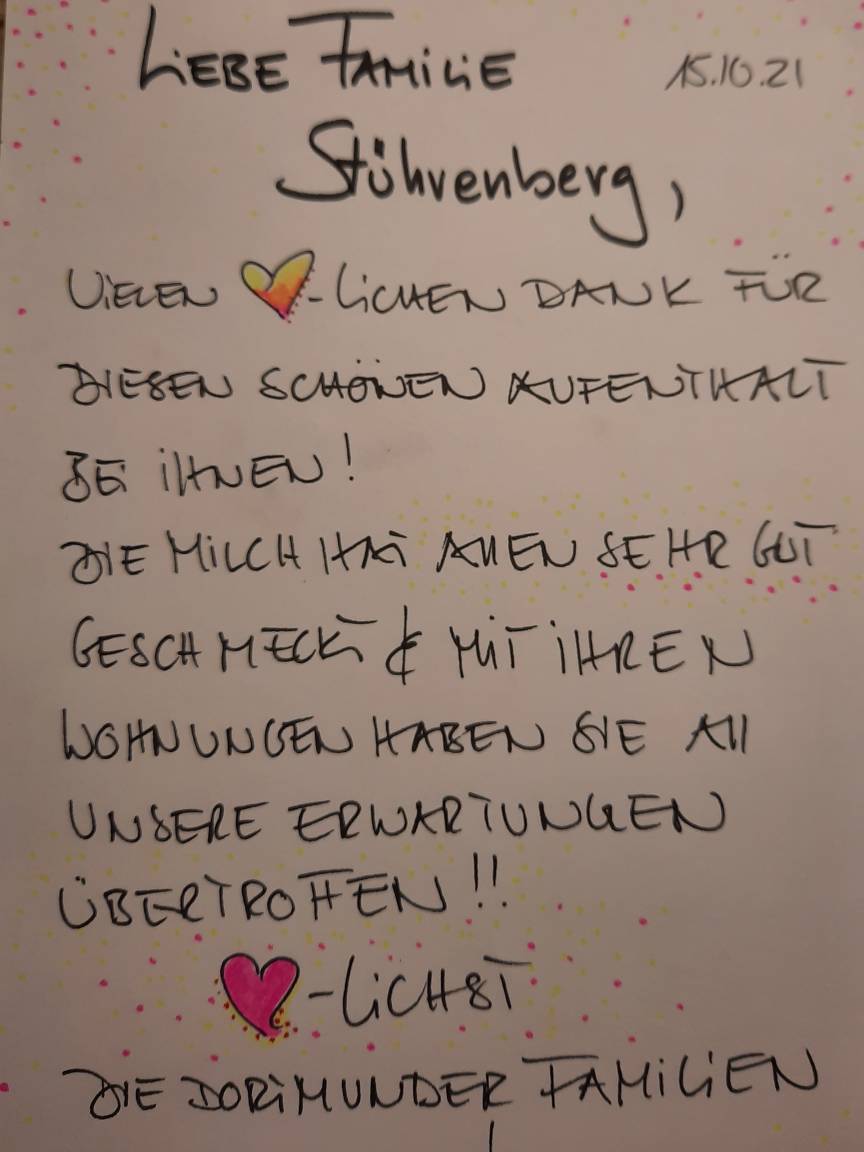 LIEBE FAMILIE 15.10.21
Stührenberg,
VIELEN ♥-LICHEN DANK FÜR
DIESEN SCHÖNEN AUFENTHALT
BEI IHNEN!
DIE MILCH HAT ALLEN SEHR GUT
GESCHMECKT & MIT IHREN
WOHNUNGEN HABEN SIE ALL
UNSERE ERWARTUNGEN
ÜBERTROFFEN!!
♥-LICHST
DIE DORTMUNDER FAMILIEN